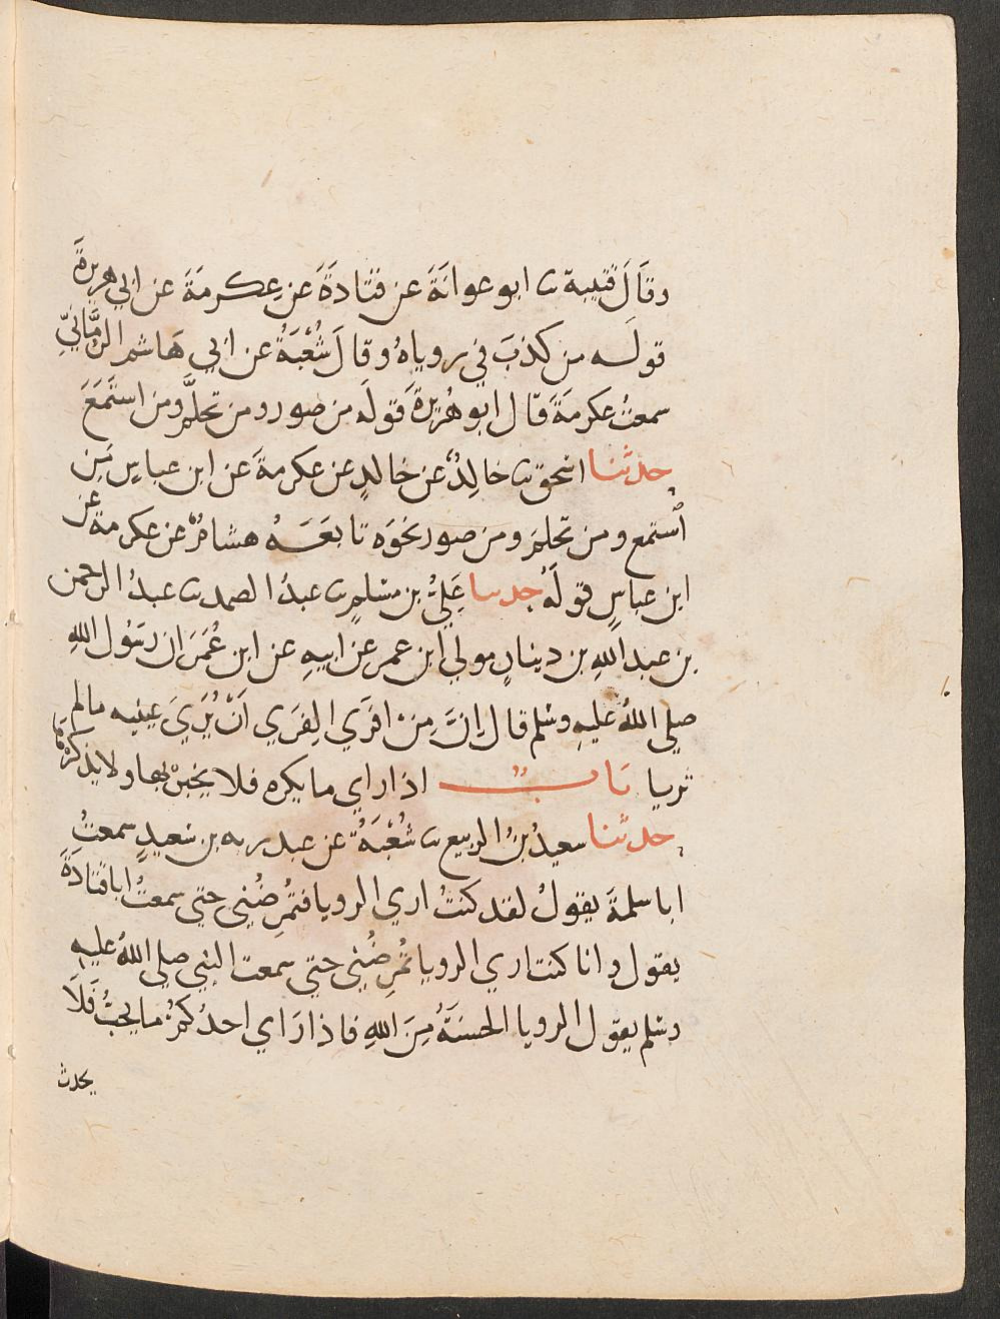 وقَالَ قتيبة ثا ابو عوانَةَ عن قتادَةَ عن عِكرمَةَ عن ابي هريرةَ
قولَه من كذبَ في روياهُ وقالَ شُعْبَةُ عن ابي هَاشم الرمَّانيِّ
سمعتُ عكرمَةَ قال ابو هُرَيرةَ قولَه من صور ومن تحلَّم ومن استَمَعَ
حدثنا اسحق ثا خالِدٌ عن خالدٍ عن عكرمةَ عن ابن عباسٍ مَن
استمع ومن تحلم ومن صور نحوَه تابعَهُ هشامٌ عن عكرمة عن
ابن عباسٍ قولَهُ حدثنا عَلِيُّ بن مسْلمٍ ثا عبدُ الصمد ثا عبدُ الرحمن
بن عبد اللهِ بن دينارٍ مولي ابن عمر عن ابيهِ عن ابن عُمَرَ ان رسُول اللهِ
صلي اللهُ عليهِ وسلم قال اِنَّ مِنْ افرَي الِفرَي اَنْ يُرِيَ عينيه ما لم
تريا بَاب اذا راي ما يكره فلا يخبرْ بها ولا يذكرهَا
حدثنا سعيدُ بنُ الربيع ثا شُعْبَةُ عن عبد ربه بن سَعيدٍ سمعتُ
ابا سلمةَ يقولُ لقد كنتُ اري الرويا فتُمرِضُني حتي سمعتُ ابا قتادَةَ
يقول وانا كنت اري الرويا تُمرِضُني حتي سمعت النبي صلي اللهُ عليهِ
وسلم يقول الرويا الحسنَةُ مِنَ اللهِ فاذا رَاي احدُكمْ ما يحبُّ فَلَا
يحدث